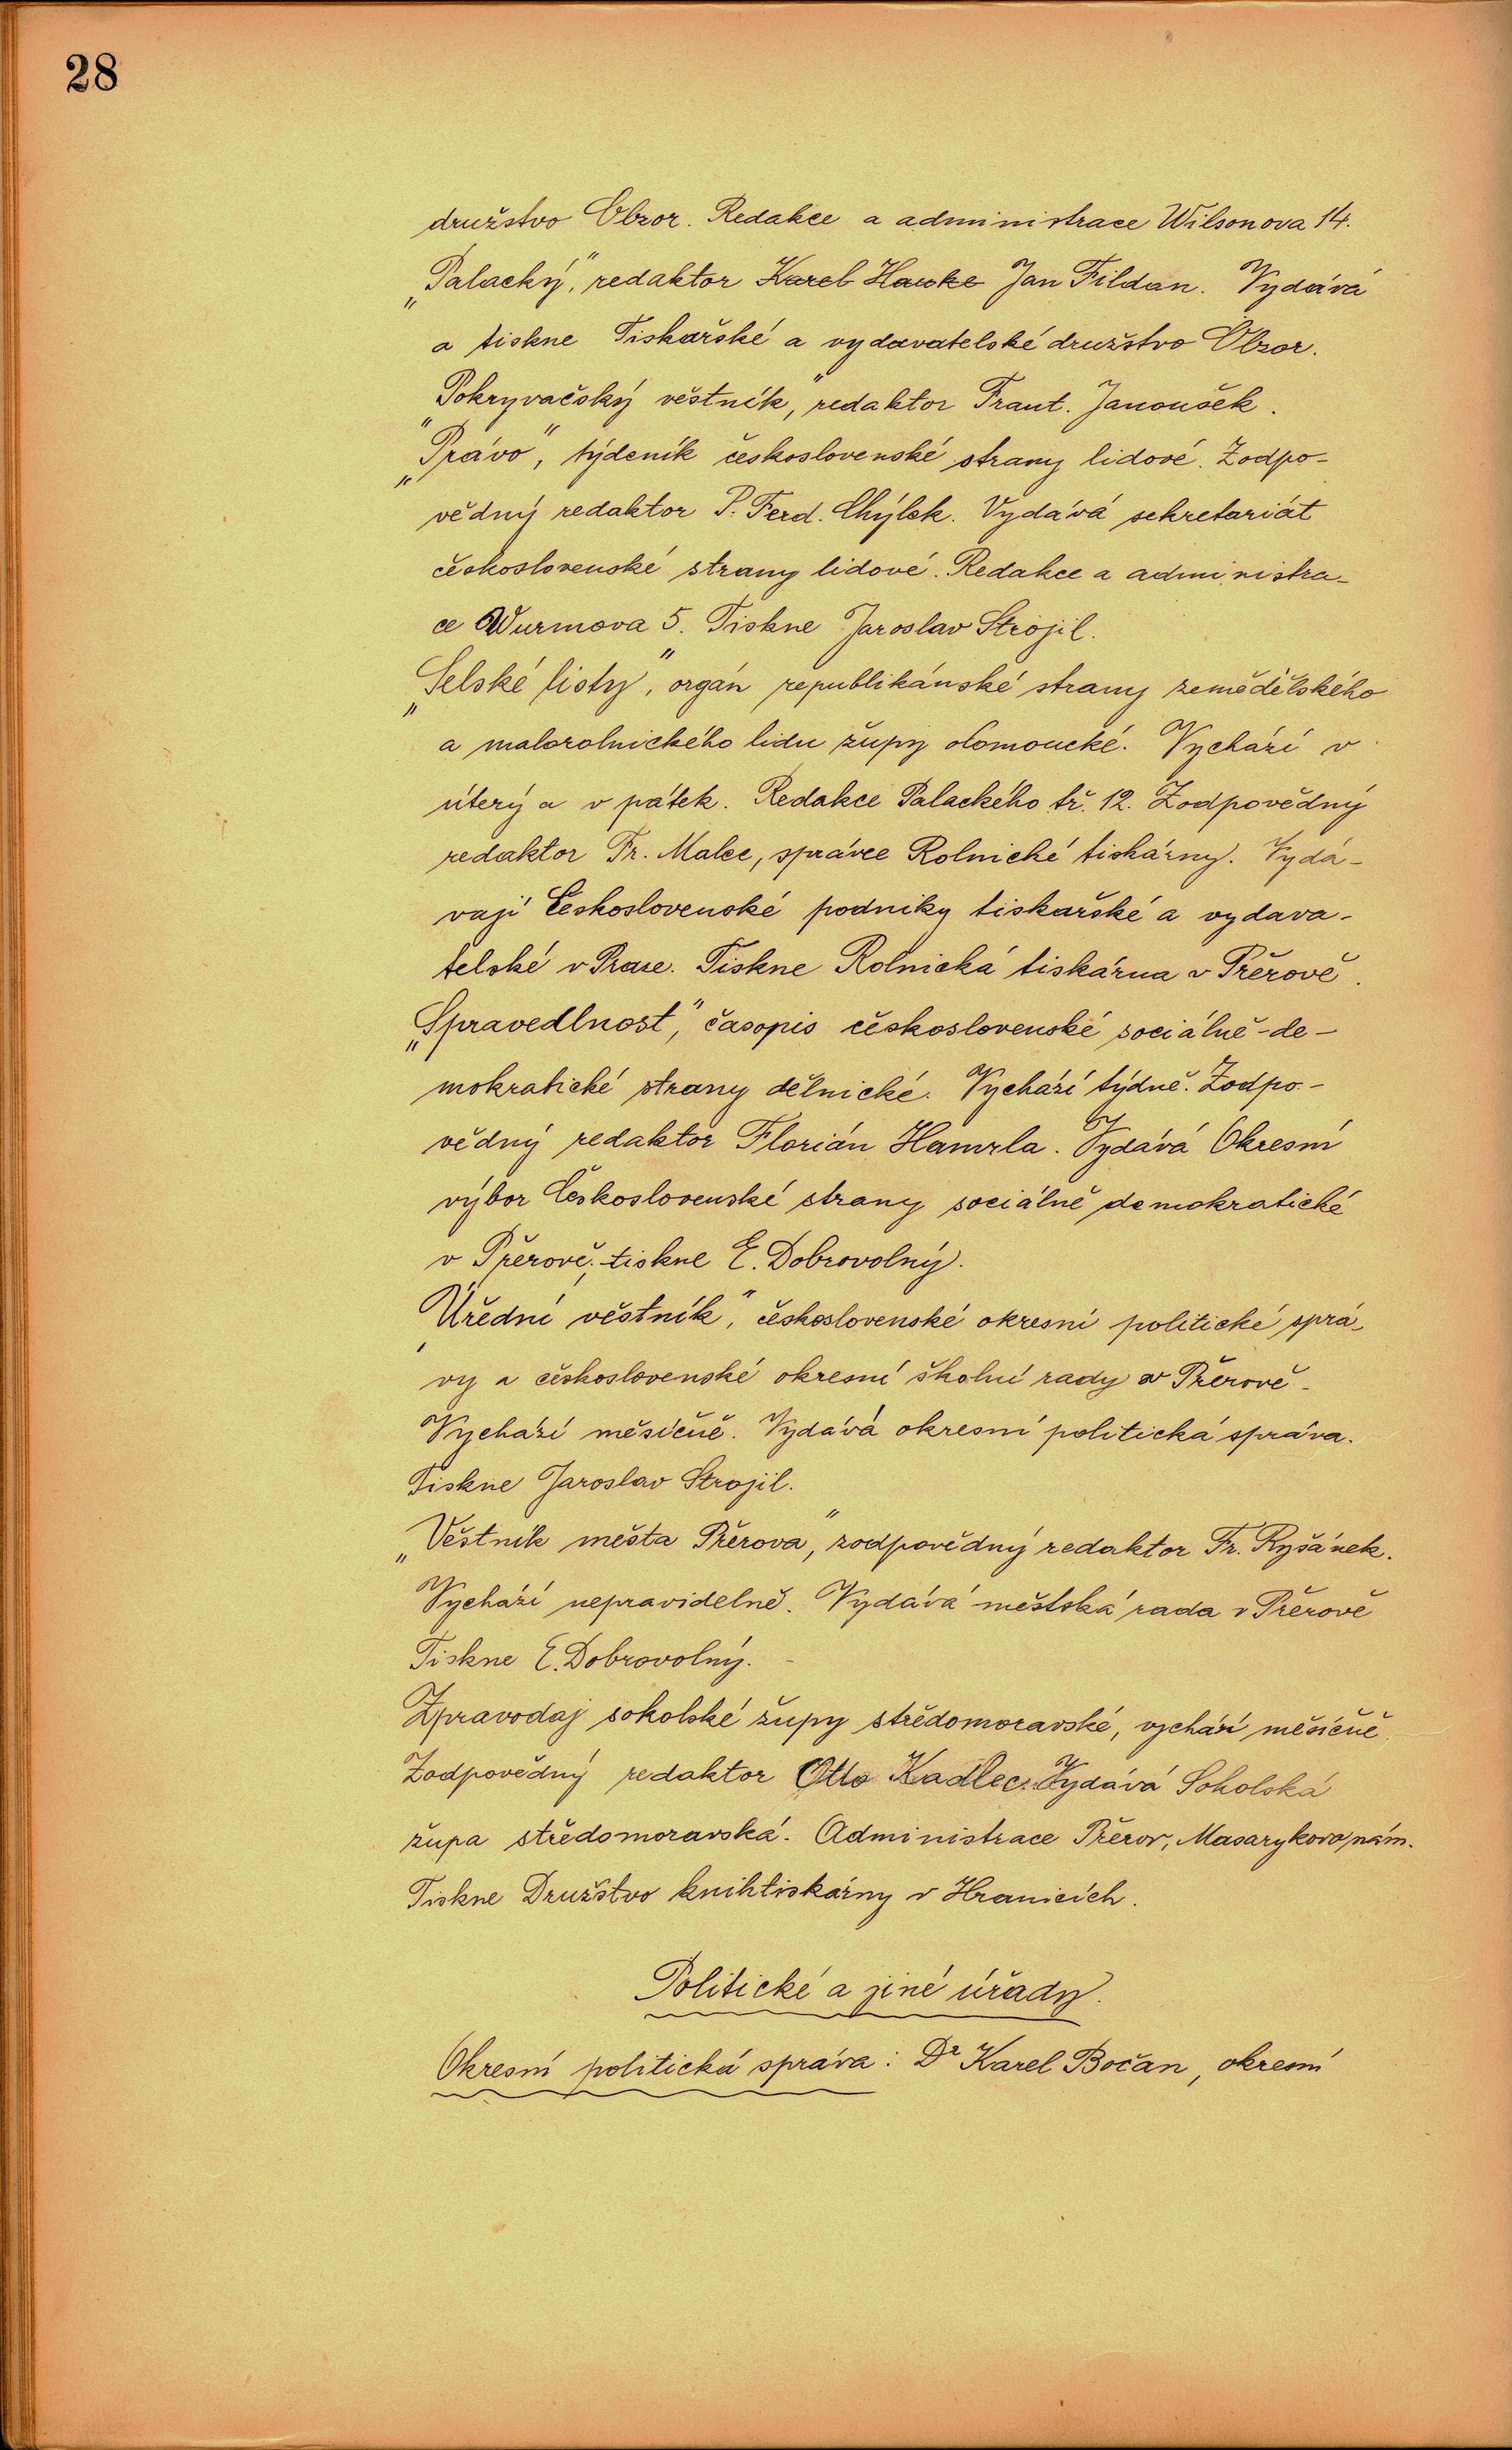 28
družstvo Obzor. Redakce a administrace Wilsonova 14.
„Palacký," redaktor Karel Hauke Jan Fildán. Vydává
a tiskne Tiskařské a vydavatelské družstvo Obzor.
„Pokryvačský věstník," redaktor Frant. Janoušek.
„Právo", týdeník československé strany lidové. Zodpo-
vědný redaktor P. Ferd. Chýlek. Vydává sekretariát
československé strany lidové. Redakce a administra-
ce Wurmova 5. Tiskne Jaroslav Strojil.
„Selské listy", orgán republikánské strany zemědělského
a malorolnického lidu župy olomoucké. Vychází v
úterý a v pátek. Redakce Palackého tř. 12. Zodpovědný
redaktor Fr. Malec, správce Rolnické tiskárny. Vydá-
vají Československé podniky tiskařské a vydava-
telské v Praze. Tiskne Rolnická tiskárna v Přerově.
„Spravedlnost," časopis československé sociálně-de-
mokratické strany dělnické. Vychází týdně. Zodpo-
vědný redaktor Florián Hamrla. Vydává Okresní
výbor Československé strany sociálně demokratické
v Přerově; tiskne E. Dobrovolný.
„Úřední věstník," československé okresní politické sprá-
vy a československé okresní školní rady v Přerově.
Vychází měsíčně. Vydává okresní politická správa.
Tiskne Jaroslav Strojil.
„Věstník města Přerova," zodpovědný redaktor Fr. Ryšánek.
Vychází nepravidelně. Vydává městská rada v Přerově
Tiskne E. Dobrovolný.
Zpravodaj sokolské župy středomoravské, vychází měsíčně.
Zodpovědný redaktor Otto Kadlec. Vydává Sokolská
župa středomoravská. Administrace Přerov, Masarykovo nám.
Tiskne Družstvo knihtiskárny v Hranicích.
Politické a jiné úřady.
Okresní politická správa: Dr Karel Bočan, okresní